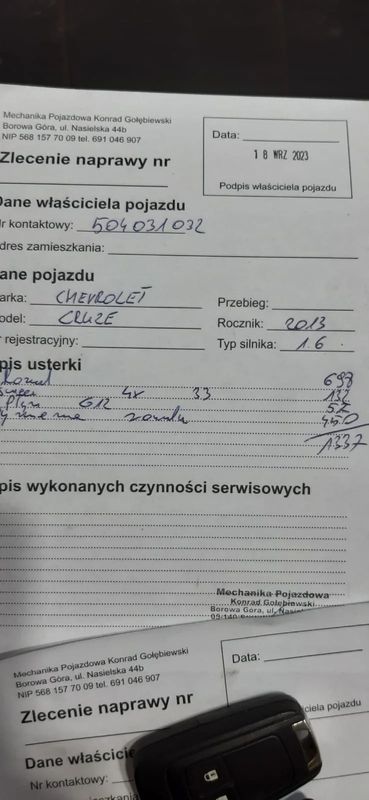 Mechanika Pojazdowa Konrad Gołębiewski
Borowa Góra, ul. Nasielska 44b
NIP 568 157 70 09 tel. 691 046 907
Data:
18 WRZ 2023
Podpis właściciela pojazdu
Zlecenie naprawy nr
Dane właściciela pojazdu
Nr kontaktowy: 504031032
dres zamieszkania:
ane pojazdu
arka: CHEVROLET
Przebieg:
odel: CRUZE
Rocznik: 2013
r rejestracyjny:
Typ silnika: 1.6
pis usterki
698
4x 33 132
Płyn G12 57
450
1337
pis wykonanych czynności serwisowych
Mechanika Pojazdowa
Konrad Gołębiewski
Borowa Góra, ul. Nasiel
05-140
Mechanika Pojazdowa Konrad Gołębiewski
Borowa Góra, ul. Nasielska 44b
NIP 568 157 70 09 tel. 691 046 907
Data:
Zlecenie naprawy nr
ściciela pojazdu
Dane właścicie
Nr kontaktowy:
zkania